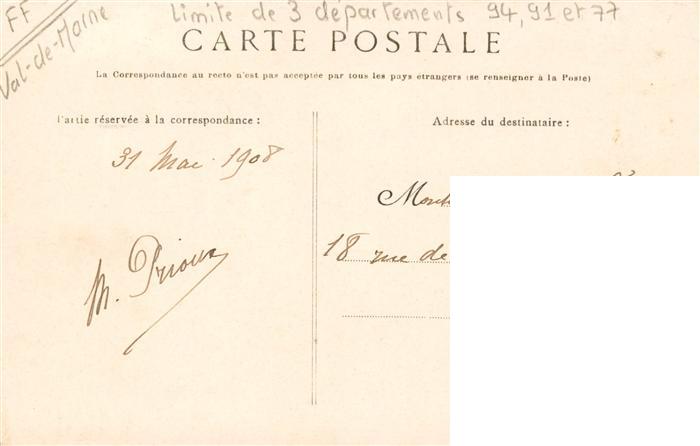 FF
Val-de-Marne
Limite de 3 départements 94, 91 et 77
CARTE POSTALE
La Correspondance au recto n'est pas acceptée par tous les pays étrangers (se renseigner à la Poste)
Partie réservée à la correspondance :
31 Mai 1908
M. Prioux
Adresse du destinataire :
18 rue de